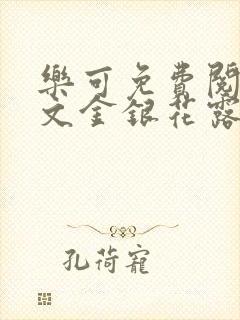 樂可免費閱
文金銀花露
孔荷寵